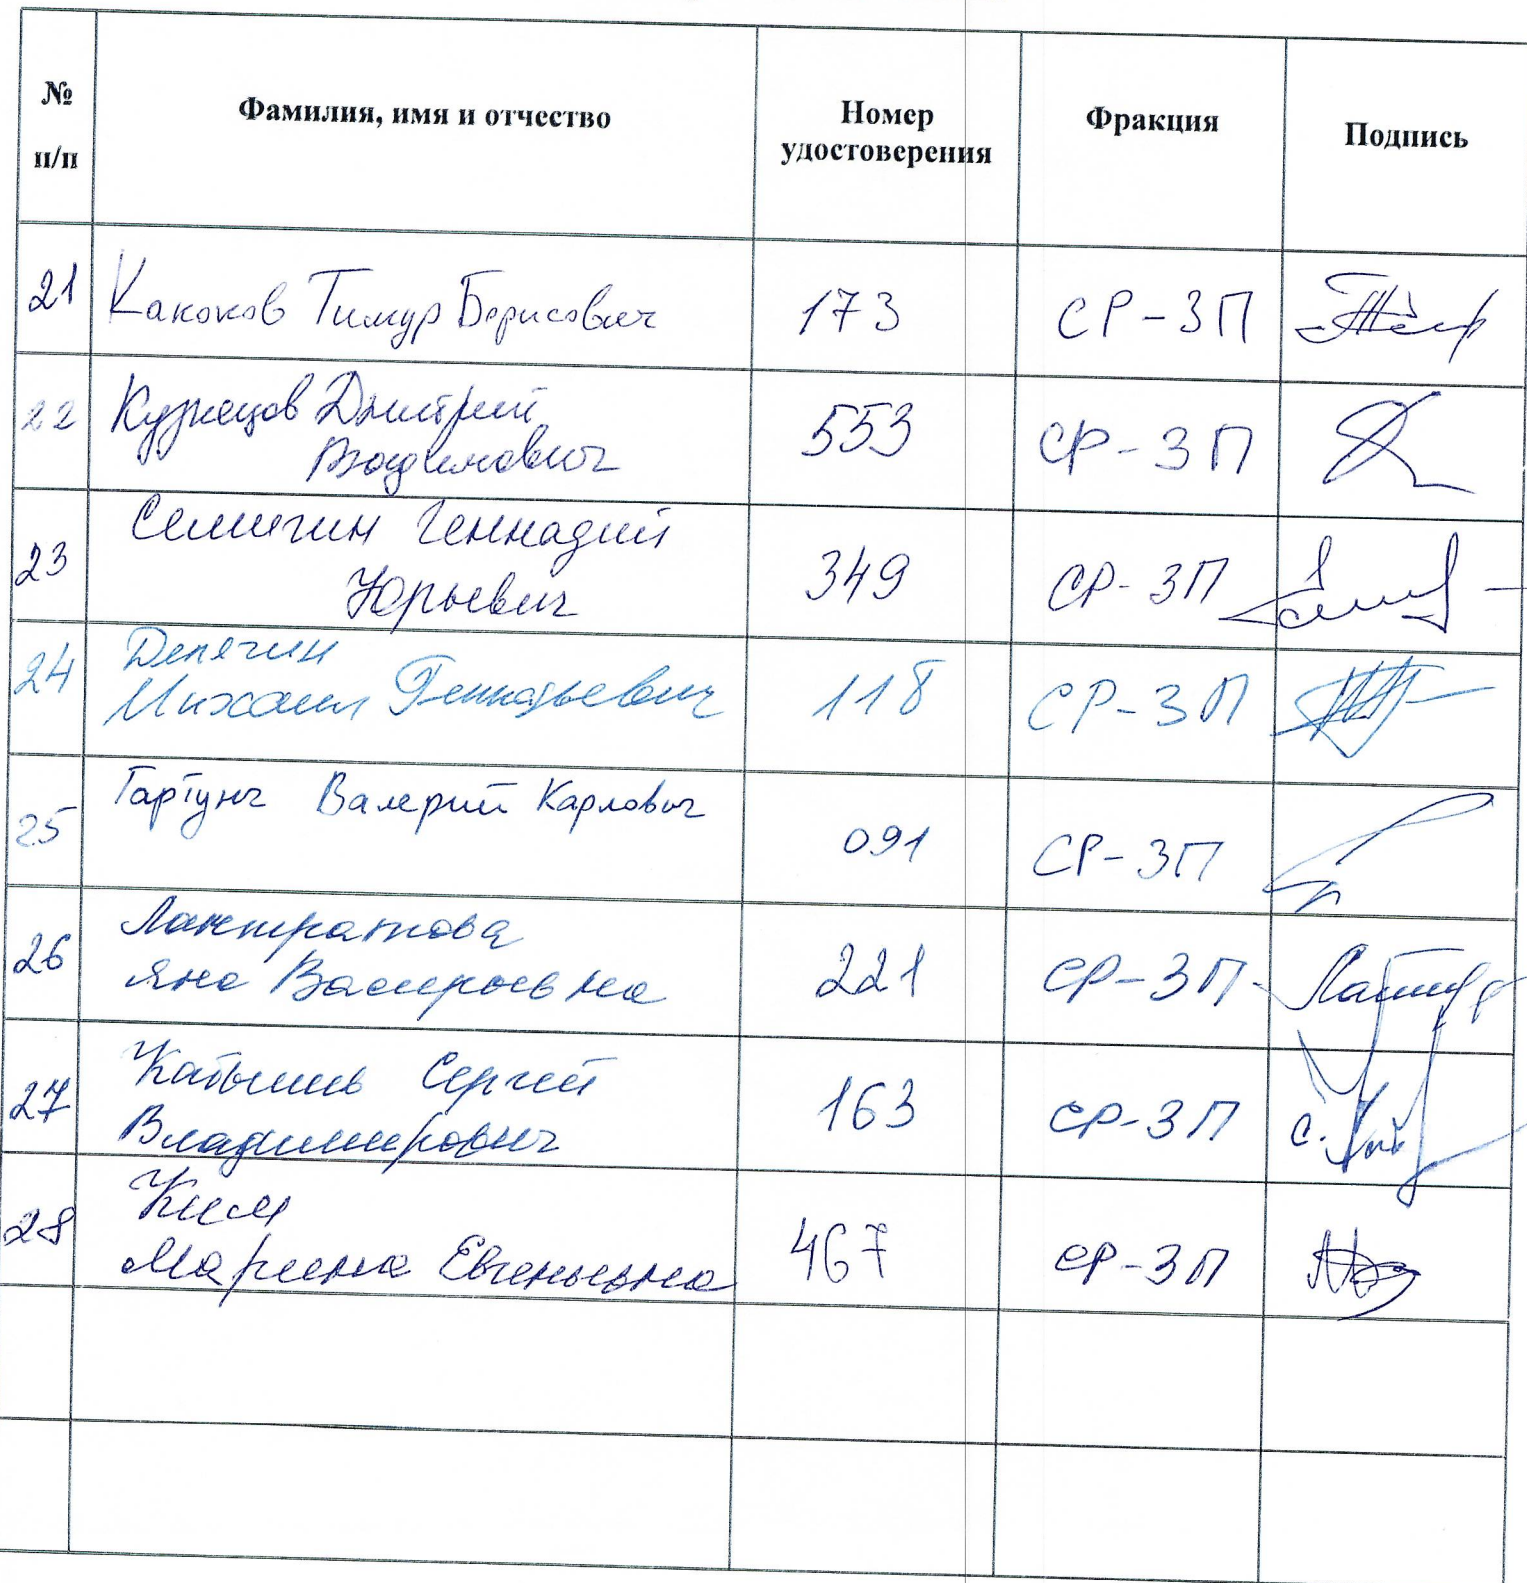 № п/п Фамилия, имя и отчество Номер удостоверения Фракция Подпись
21 Какоков Тимур Борисович 173 СР-ЗП
22 Кузнецов Дмитрий
Вадимович 553 СР-ЗП
23 Семигин Геннадий
Юрьевич 349 СР-ЗП
24 Делягин
Михаил Геннадьевич 118 СР-ЗП
25 Гартунг Валерий Карлович 091 СР-ЗП
26 Лантратова
Яна Валерьевна 221 СР-ЗП
27 Кабышев Сергей
Владимирович 163 СР-ЗП
28 Ким
Марина Евгеньевна 467 СР-ЗП